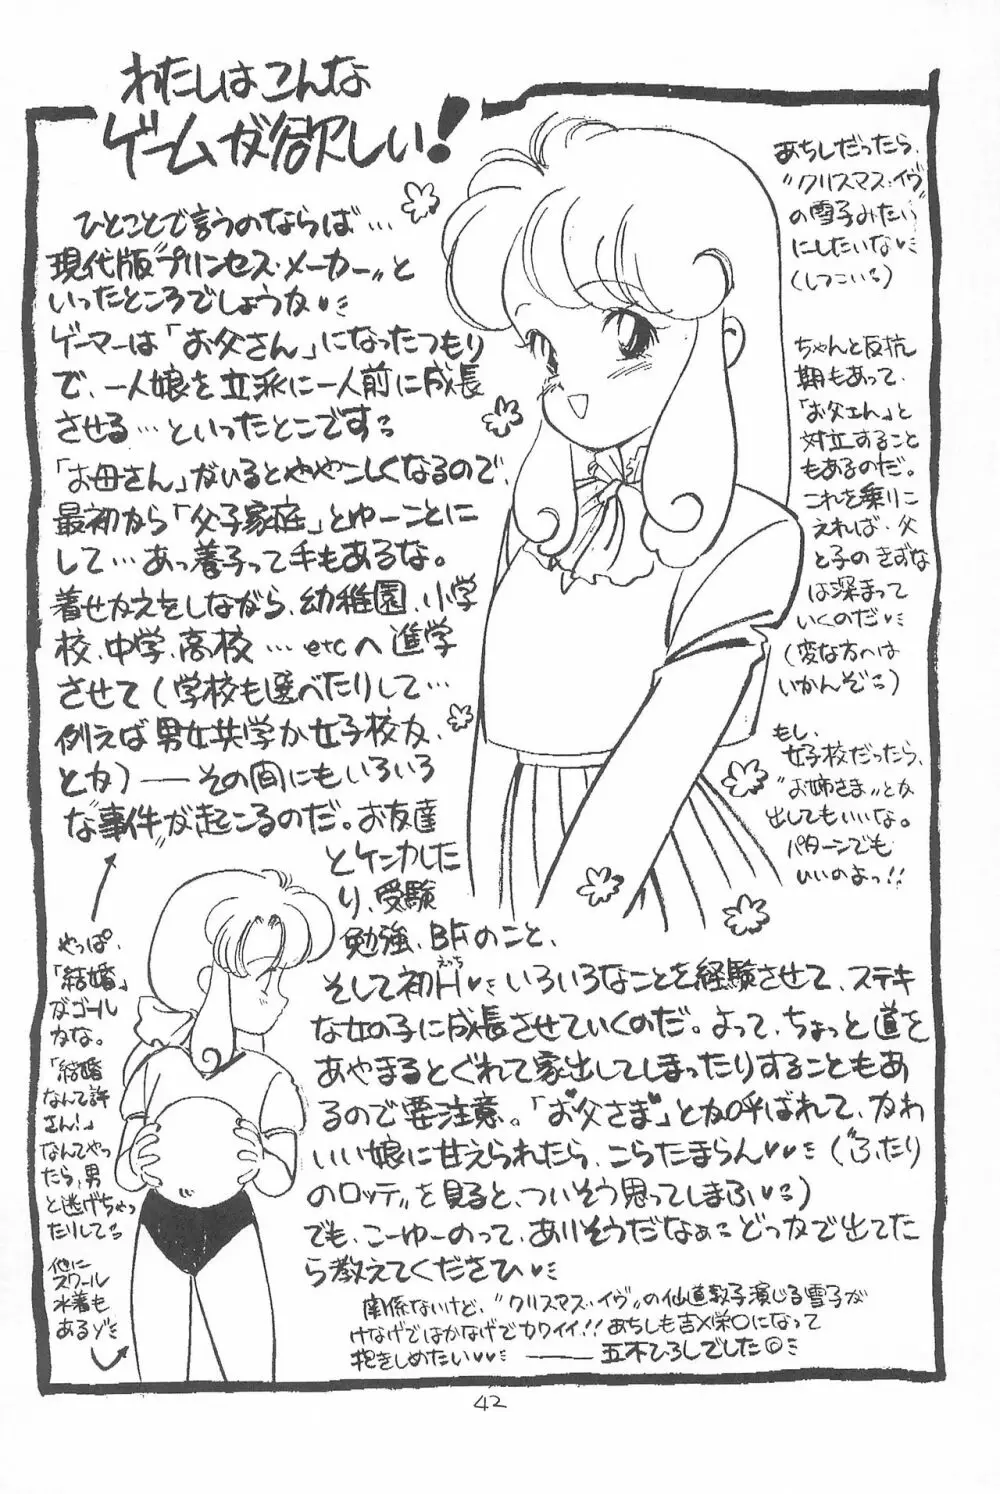 わたしはこんな
ゲームが欲しい!
ひとことで言うのならば…
現代版"プリンセス・メーカー"と
いったところでしょうか
ゲーマーは「お父さん」になったつもり
で、一人娘を立派に一人前に成長
させる…といったとこです
「お母さん」がいるとややこしくなるので、
最初から「父子家庭」とゆーことに
して…あっ養子って手もあるな。
着せかえをしながら、幼稚園、小学
校、中学、高校…etcへ進学
させて(学校も選べたりして…
例えば男女共学か女子校か、
とか)――その間にもいろいろ
な"事件"が起こるのだ。お友達
とケンカした
り、受験
勉強、BFのこと、
そして初H♥いろいろなことを経験させて、ステキ
えっち
な女の子に成長させていくのだ。よって、ちょっと道を
あやまるとぐれて家出してしまったりすることもあ
るので要注意。「お父さま」とか呼ばれて、かわ
いい娘に甘えられたら、こらたまらん♥♥("ふたり
のロッテ"を見ると、ついそう思ってしまふ♥)
でも、こーゆーのって、ありそうだなぁ どっかで出てた
ら教えてくださひ♥
関係ないけど、"クリスマス・イヴ"の仙道敦子演じる雪子が
けなげではかなげでカワイイ!!あちしも吉×栄○になって
抱きしめたい♥♥ ――五木ひろしでした
あちしだったら、
"クリスマス・イヴ"
の雪子みたい
にしたいな♥
(しつこい)
ちゃんと反抗
期もあって、
「お父さん」と
対立すること
もあるのだ。
これを乗りこ
えれば、父
と子のきずな
は深まって
いくのだ♥
(変な方へは
いかんぞ)
もし、
女子校だったら、
"お姉さま"とか
出してもいいな。
パターンでも
いいのよっ!!
やっぱ、
「結婚」
がゴール
かな。
「結婚
なんて許
さん!」
なんてやっ
たら、男
と逃げちゃっ
たりして
他に
スクール
水着も
あるゾ
42